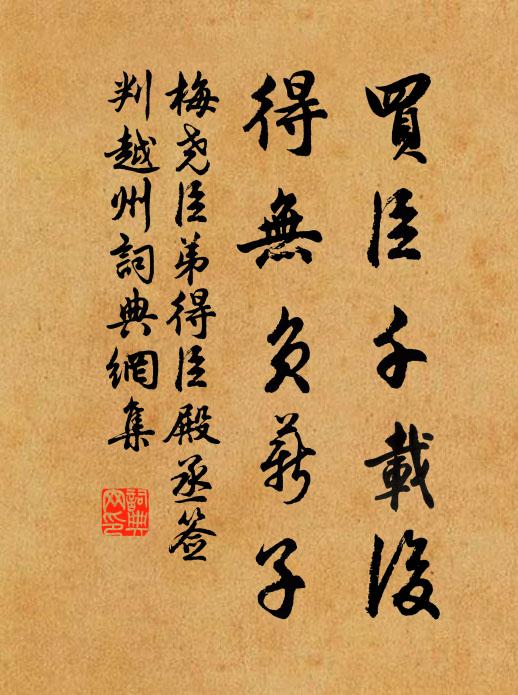 買臣千載後
得無負薪子
梅尧臣弟得臣殿丞签
判越州詞典網集
詞典网印